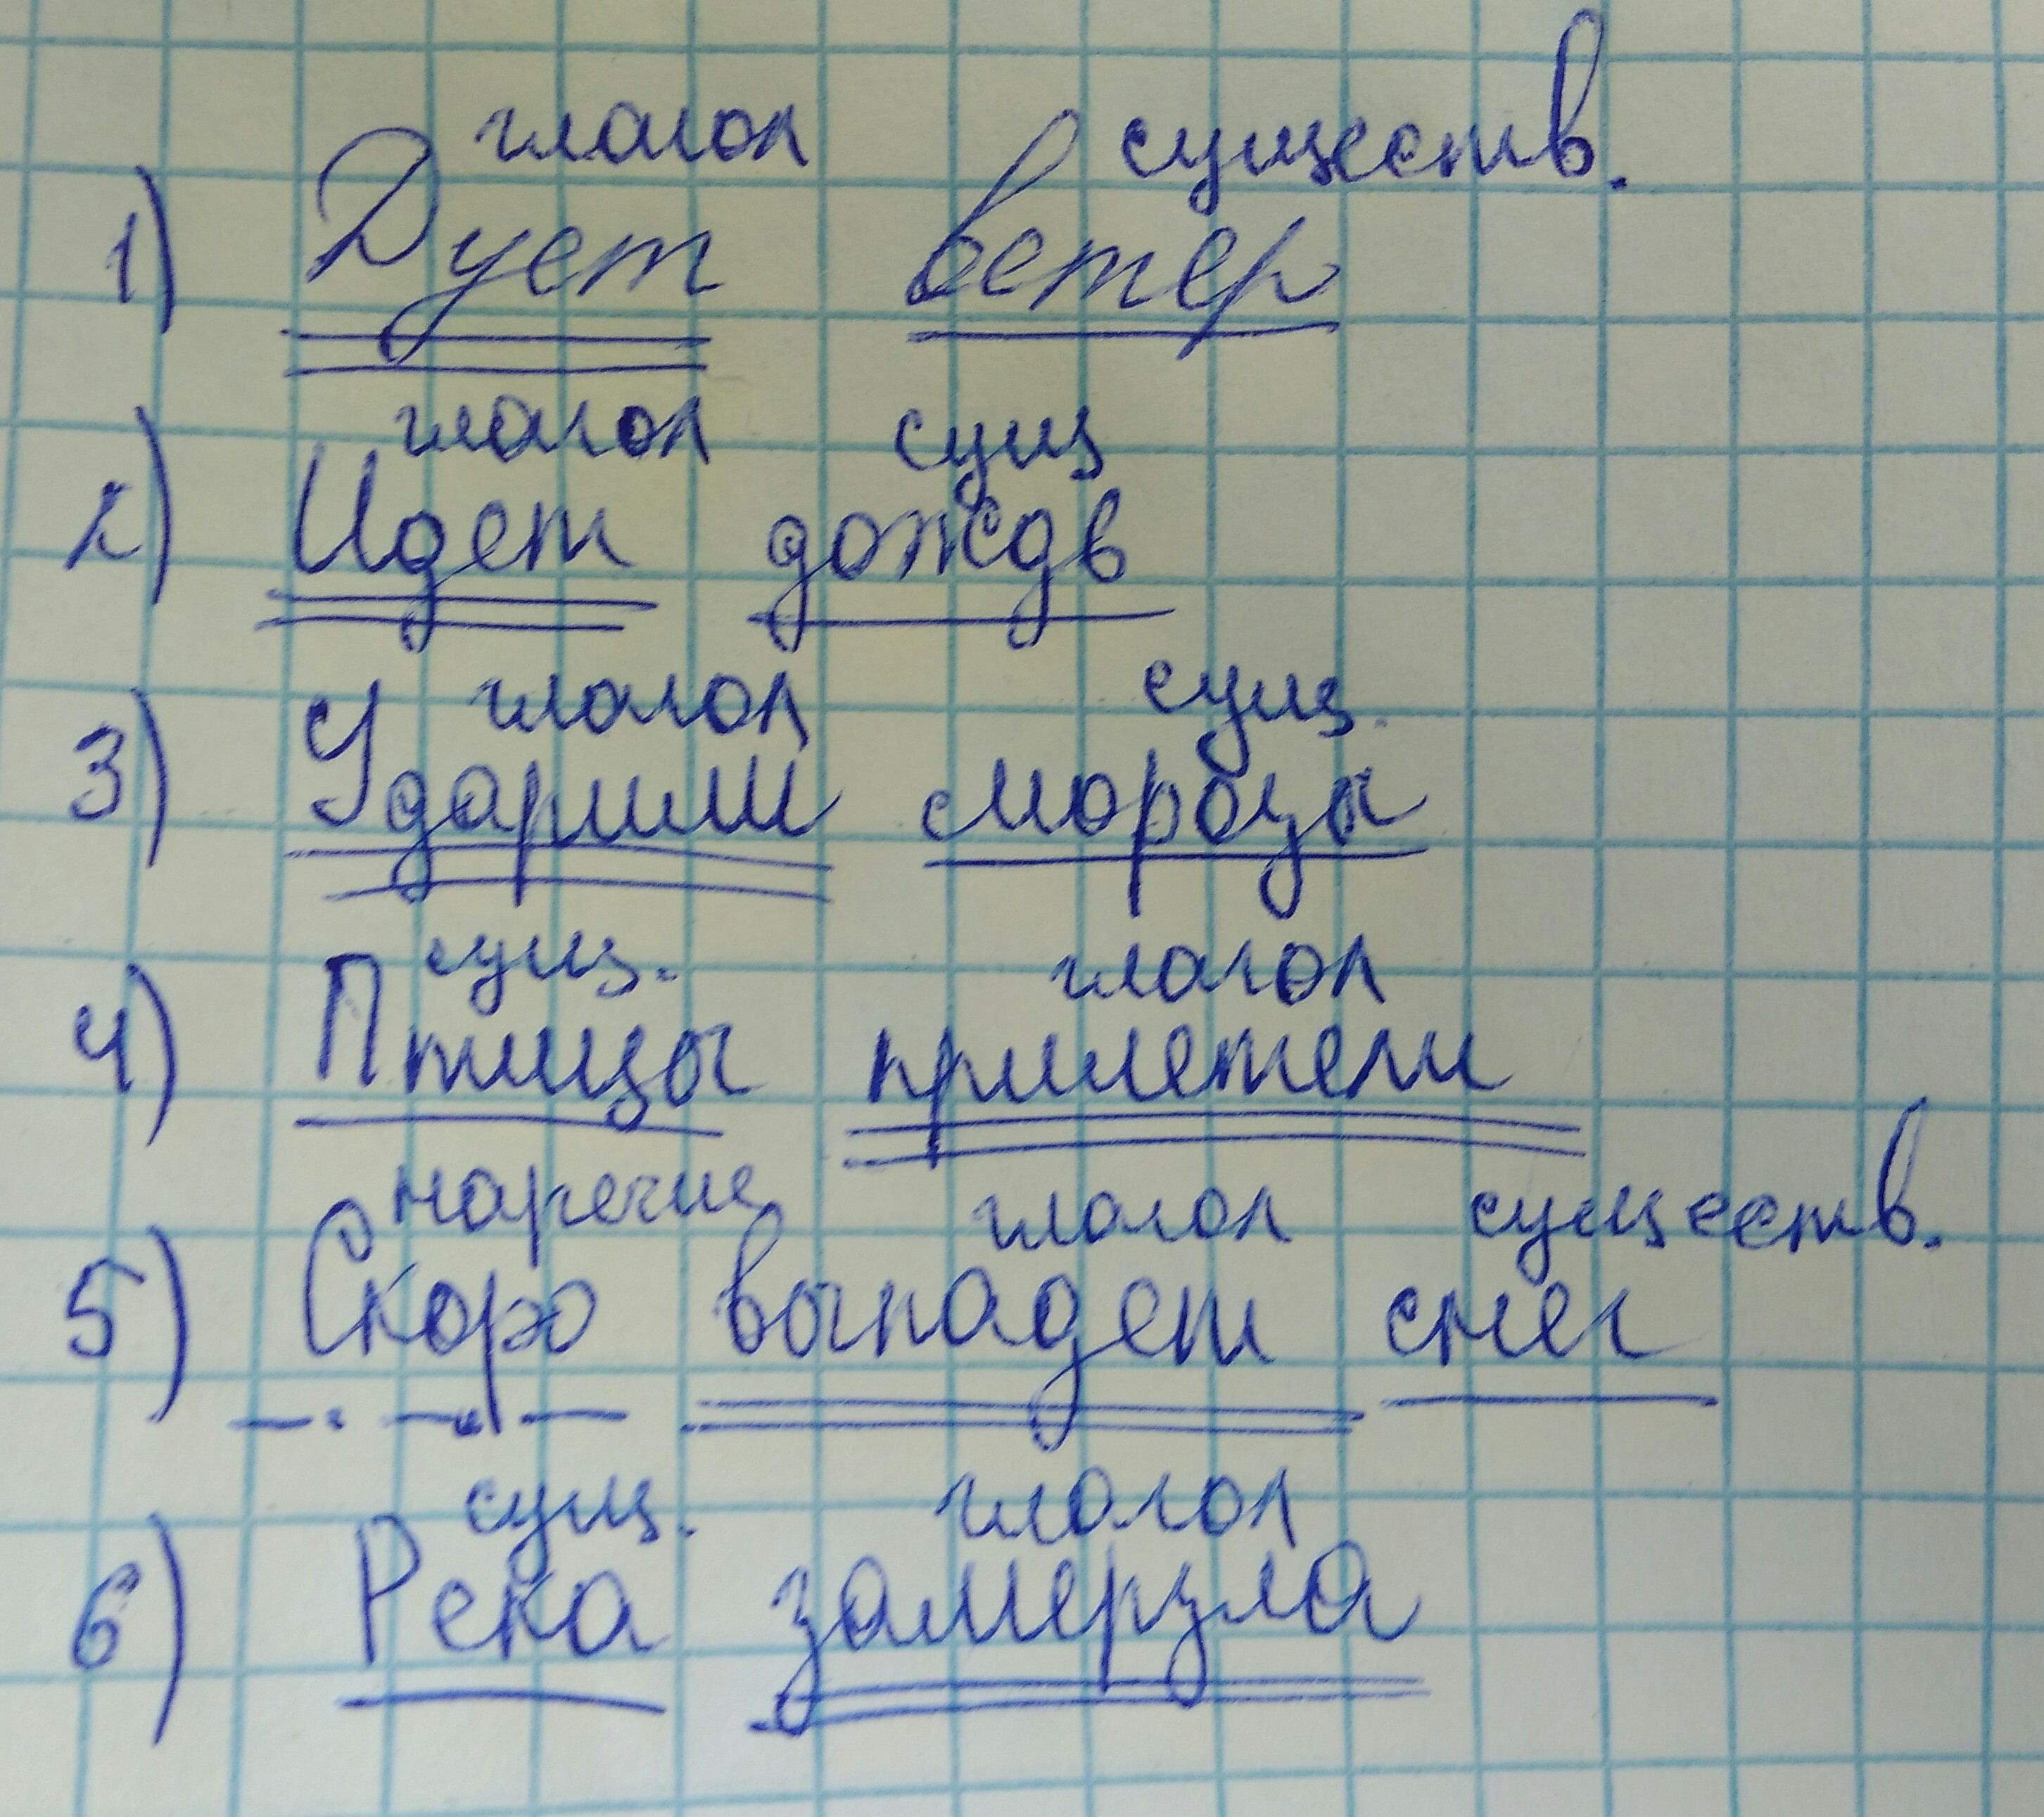 глагол существ.
1) Дует ветер
глагол сущ
2) Идет дождь
глагол сущ.
3) Ударили морозы
сущ. глагол
4) Птицы прилетели
наречие глагол существ.
5) Скоро выпадет снег
сущ. глагол
6) Река замерзла